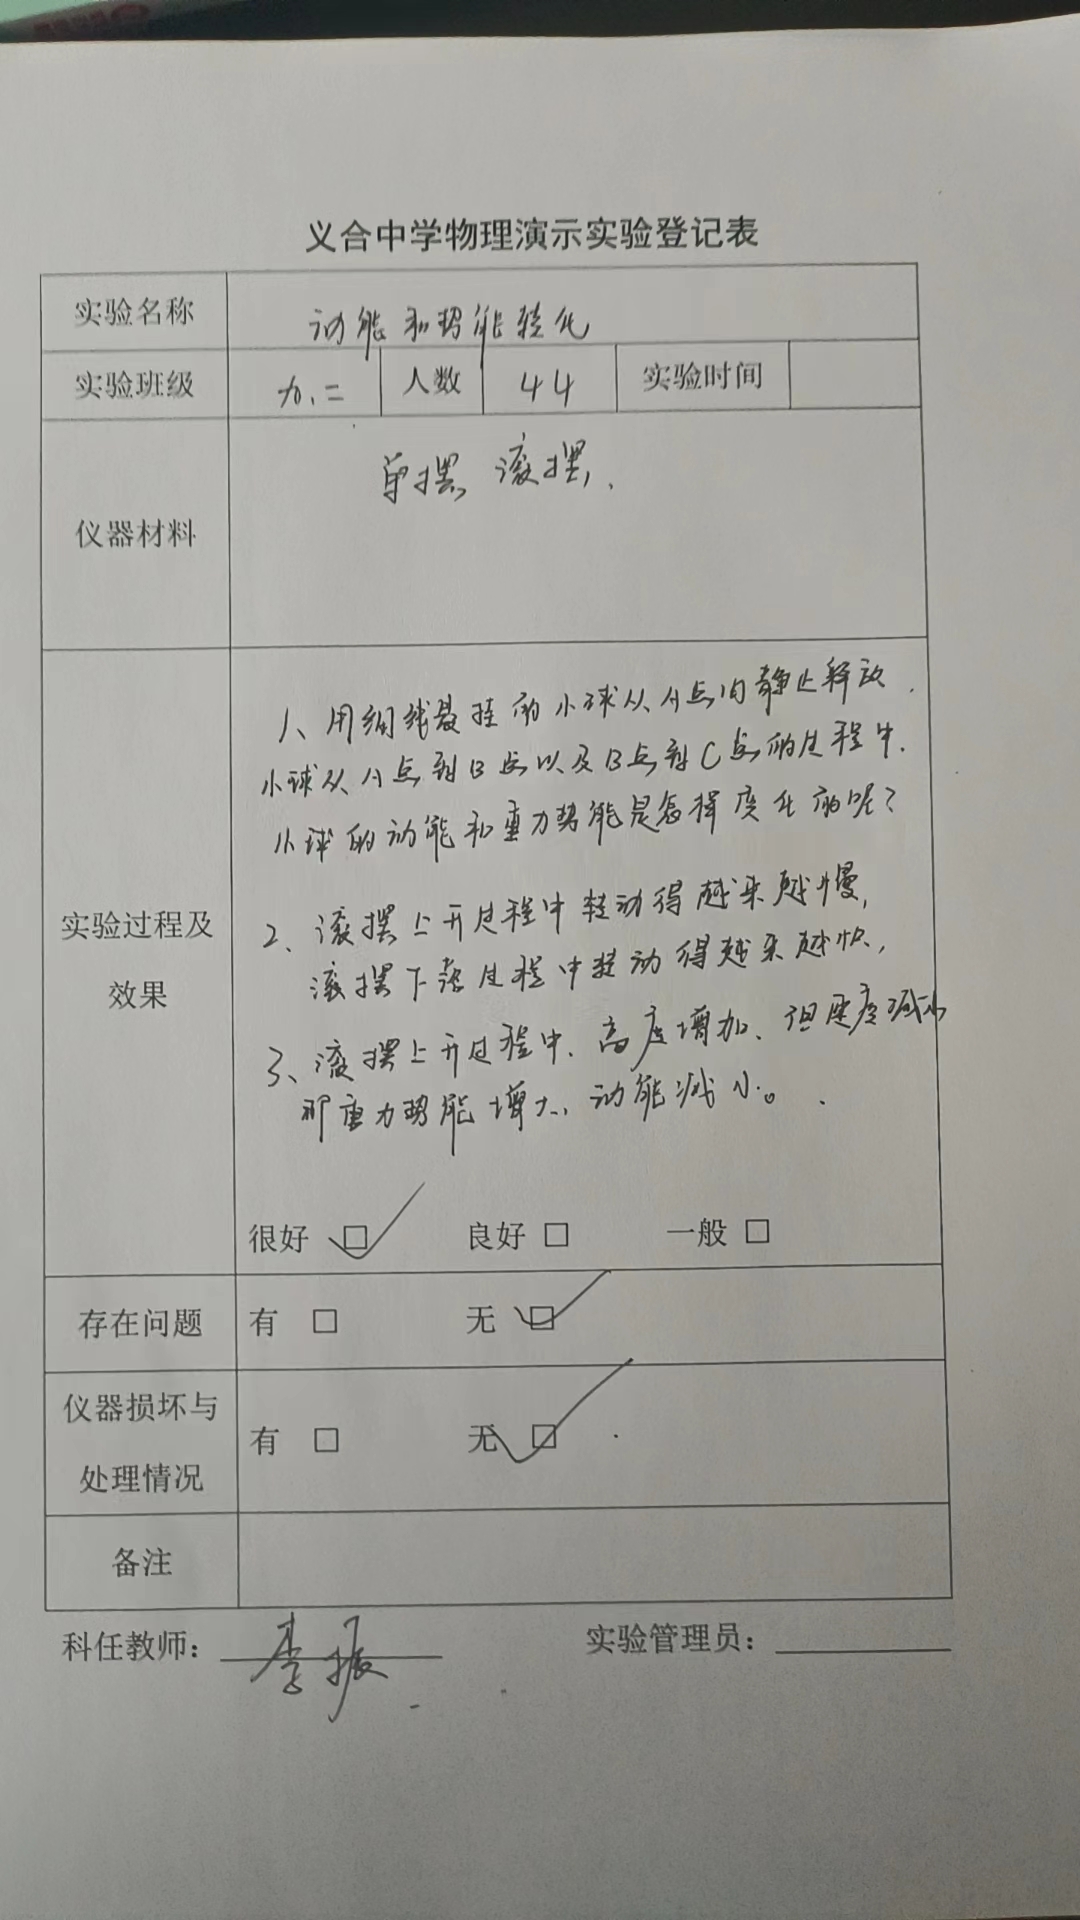 义合中学物理演示实验登记表
实验名称 动能和势能转化
实验班级 九.二 人数 44 实验时间
仪器材料 单摆、滚摆、
1、用细线悬挂的小球从A点由静止释放.
小球从A点到B点以及B点到C点的过程中.
小球的动能和重力势能是怎样变化的呢?
实验过程及
效果
2、滚摆上升过程中转动得越来越慢,
滚摆下落过程中转动得越来越快,
3、滚摆上升过程中、高度增加、但速度减小
即重力势能增大、动能减小。
很好 ☑ 良好 □ 一般 □
存在问题 有 □ 无 ☑
仪器损坏与
处理情况 有 □ 无 ☑
备注
科任教师: 李振 实验管理员: